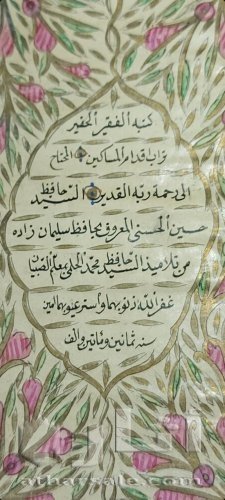 كتبه الفقير الحقير
تراب اقدام المساكين المحتاج
الى رحمة ربه القدير السيد حافظ
حسين الحسنى المعروف بحافظ سليمان زاده
من تلاميذ السيد حافظ محمد الحلمى معلم الصبيان
غفر الله ذنوبهما وأستر عيوبهما آمين
سنه ثمانين ومأتين والف
atharsale.com